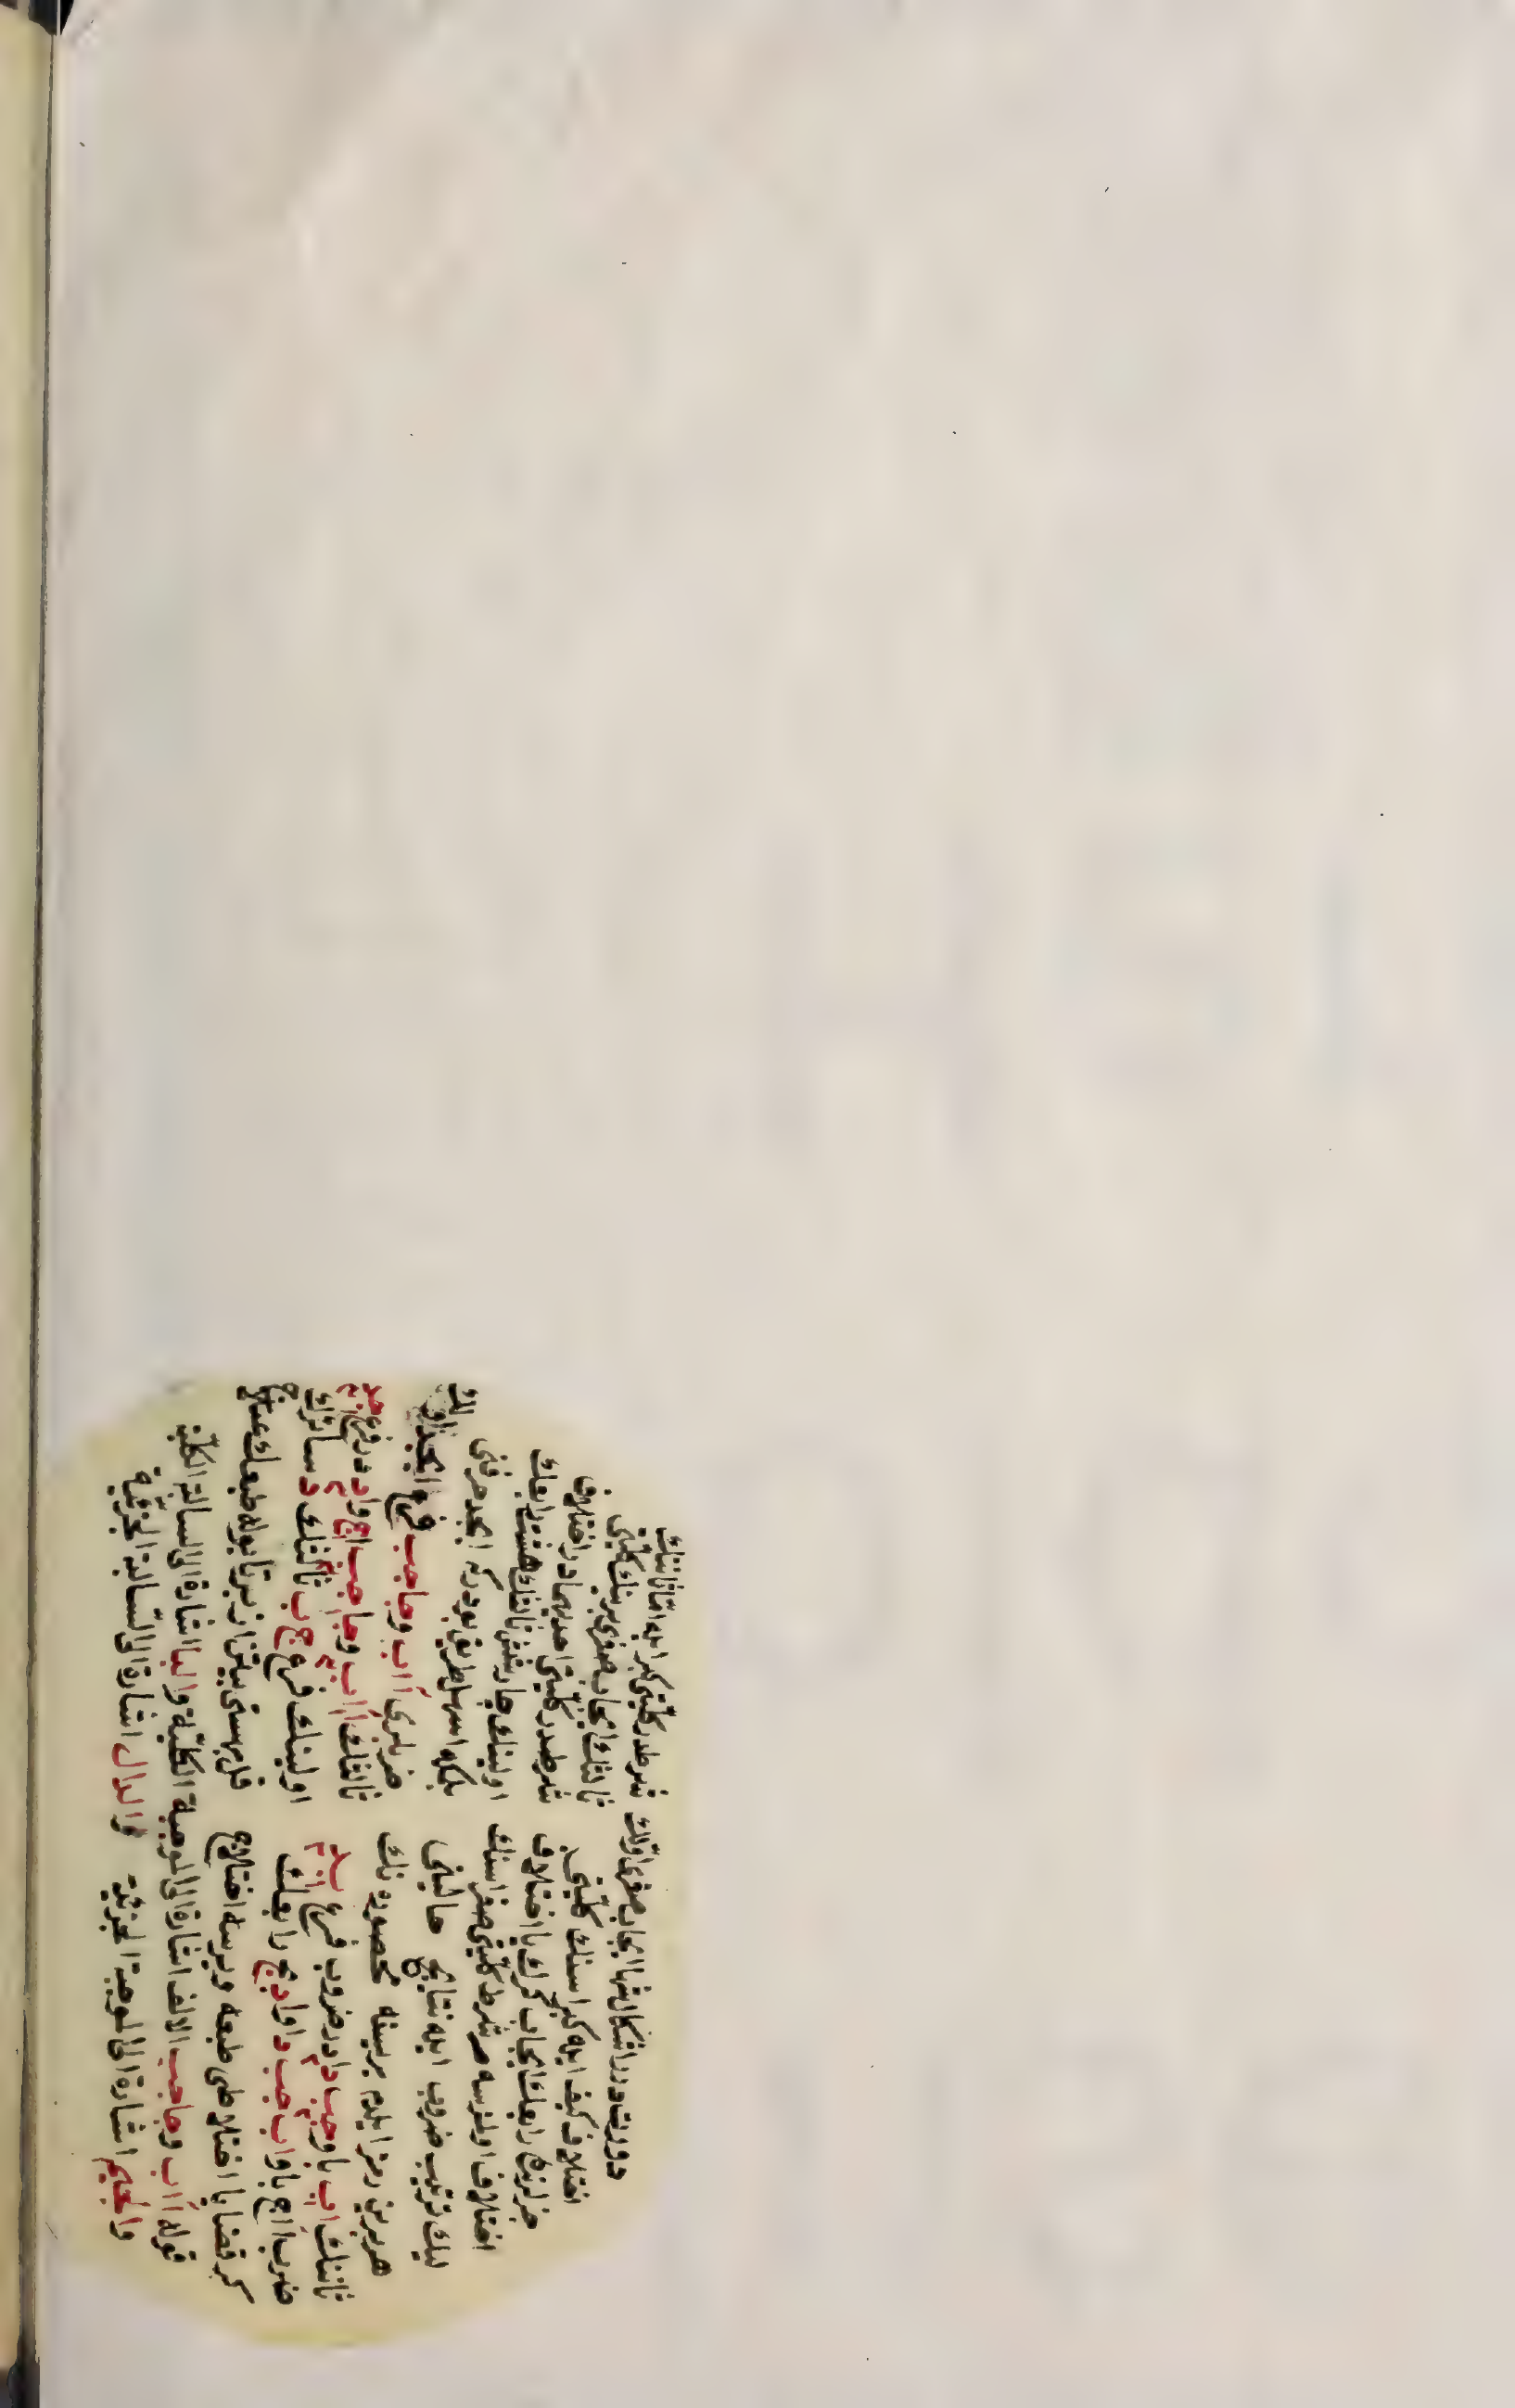 دورت در اشكال شها ايجاب صغرى اولك شرطدر كليتى كبرا ايله اما ثاننك
اختلاف كيف ايله كبراسنك كليتى ثالثك ايجاب صغرى برينك كليتى
جزلرنك رابعك ايجاب يا اختلاف شرطدر كليتى احديهما در اختلاف
اختلاف اولمزسه هر شرط كليتى صغراسنك اولينك چار شش ثالثك هشت رابعك
ليك ترتيب ضروب ايله نتايج حالينى بلكه اسهل طريق بودر كه ابجد حرفنى
هر برين رمز ايلدم بريسنه محصوره نك ضربلرى أاب وجاجب فرع ابجد اولك
ثاننك اب با وجب دا در ضروب فرع ثالثك أاأاب وجا جب اج واد در فرع
ضرب أاج با واب جب داواد بج رابعك اولينك فرع ج ج ب ثالثك د سائرك
كر قضايا اختلاطى طبعه ويرسه اختلاج قل بو بوله طبعك علاج
قوله أاب وجاجب الالف اشارة الى الموجبة الكلية والبا اشارة الى السالبة الكلية
والجيم اشارة الى الموجبة الجزئية والدال اشارة الى السالبة الجزئية